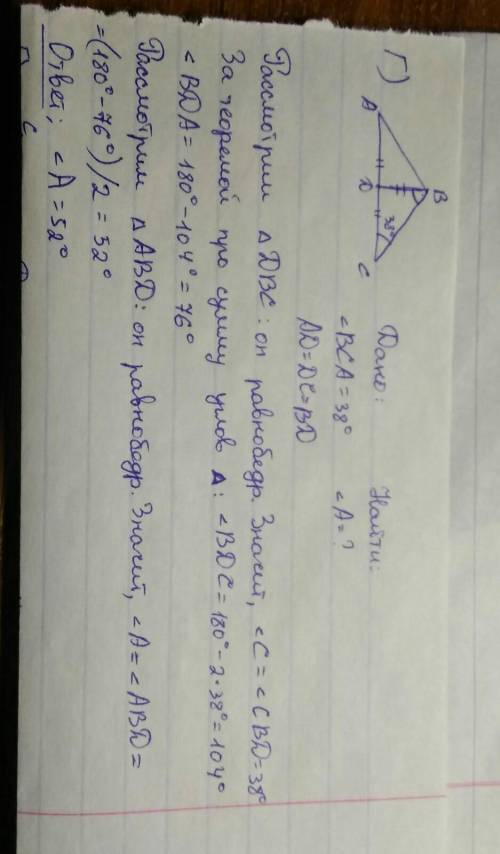 Г)
B
A
D
C
38°
Дано: Найти:
∠BCA = 38° ∠A = ?
AD = DC = BD
Рассмотрим △ DBC: он равнобедр. Значит, ∠C = ∠CBD = 38°
За теоремой про сумму углов △: ∠BDC = 180° - 2·38° = 104°
∠BDA = 180° - 104° = 76°
Рассмотрим △ ABD: он равнобедр. Значит, ∠A = ∠ABD =
= (180° - 76°)/2 = 52°
Ответ: ∠A = 52°